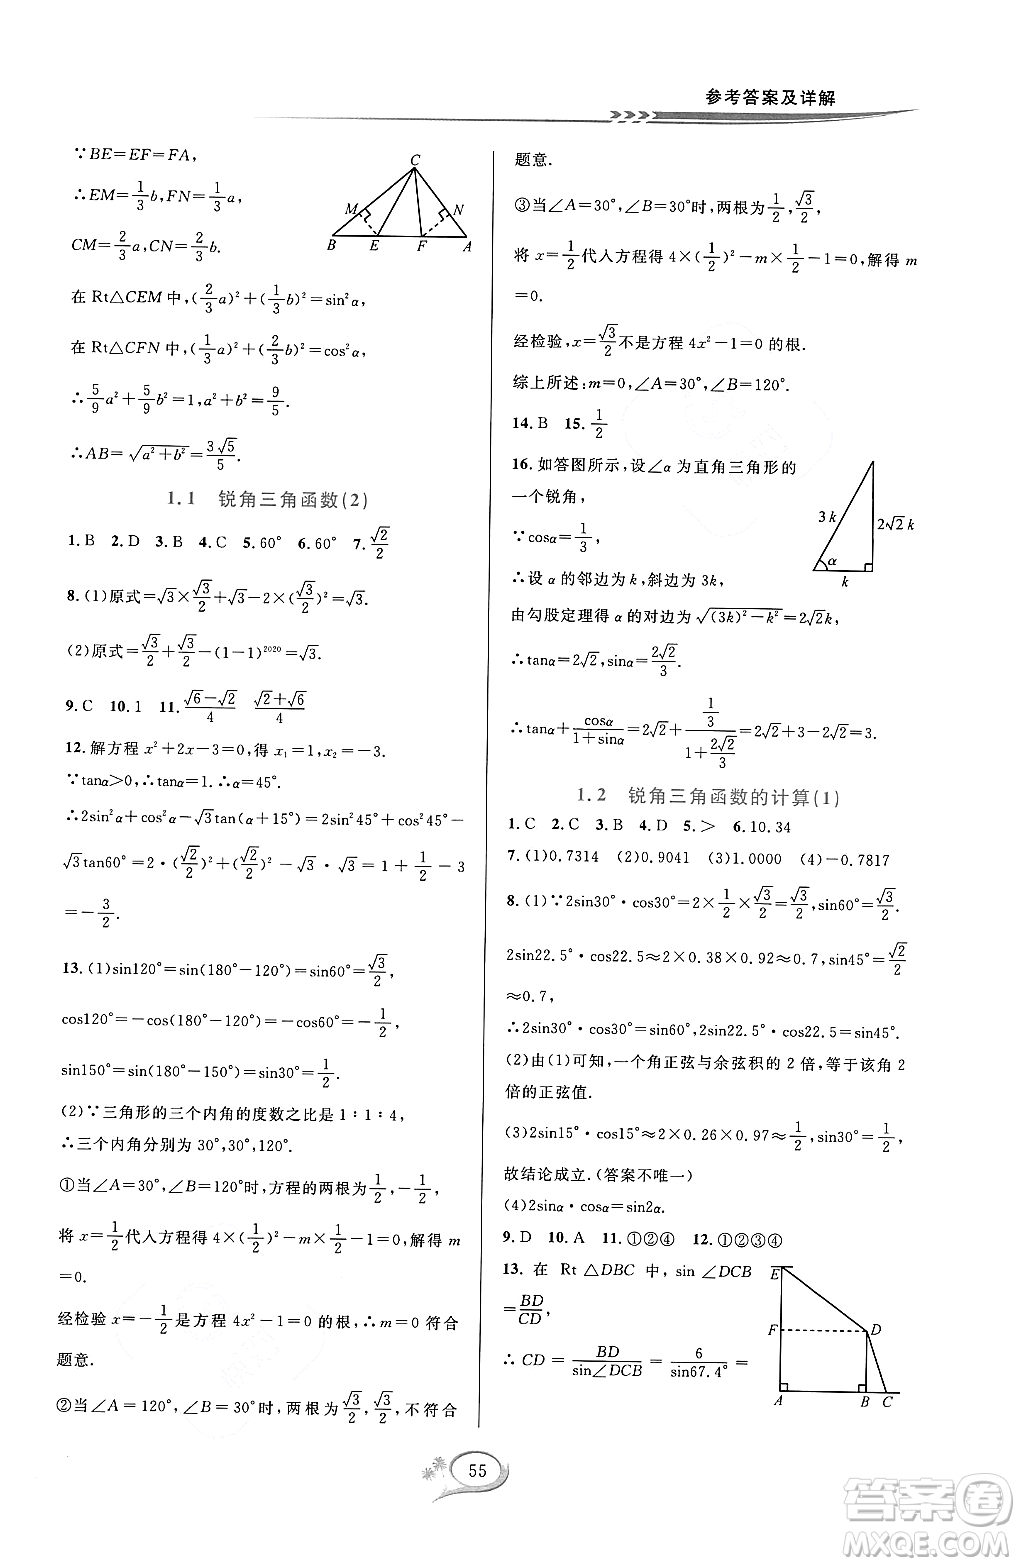 参考答案及详解
∵BE=EF=FA,
∴EM=1/3b,FN=1/3a,
CM=2/3a,CN=2/3b.
在 Rt△CEM 中,(2/3a)²+(1/3b)²=sin²α,
在 Rt△CFN 中,(1/3a)²+(2/3b)²=cos²α,
∴5/9a²+5/9b²=1,a²+b²=9/5.
∴AB=√(a²+b²)=3√5/5.
C
M
N
B E F A
1.1 锐角三角函数(2)
1.B 2.D 3.B 4.C 5.60° 6.60° 7.√2/2
8.(1)原式=√3×√3/2+√3-2×(√3/2)²=√3.
(2)原式=√3/2+√3/2-(1-1)²⁰²⁰=√3.
9.C 10.1 11.(√6-√2)/4 (√2+√6)/4
12.解方程 x²+2x-3=0,得 x₁=1,x₂=-3.
∵tanα>0,∴tanα=1.∴α=45°.
∴2sin²α+cos²α-√3tan(α+15°)=2sin²45°+cos²45°-
√3tan60°=2·(√2/2)²+(√2/2)²-√3·√3=1+1/2-3
=-3/2.
13.(1)sin120°=sin(180°-120°)=sin60°=√3/2,
cos120°=-cos(180°-120°)=-cos60°=-1/2,
sin150°=sin(180°-150°)=sin30°=1/2.
(2)∵三角形的三个内角的度数之比是 1∶1∶4,
∴三个内角分别为 30°,30°,120°.
①当∠A=30°,∠B=120°时,方程的两根为1/2,-1/2,
将 x=1/2代入方程得 4×(1/2)²-m×1/2-1=0,解得 m
=0.
经检验 x=-1/2是方程 4x²-1=0 的根,∴m=0 符合
题意.
②当∠A=120°,∠B=30°时,两根为√3/2,√3/2,不符合
题意.
③当∠A=30°,∠B=30°时,两根为1/2,√3/2,
将 x=1/2代入方程得 4×(1/2)²-m×1/2-1=0,解得 m
=0.
经检验,x=√3/2不是方程 4x²-1=0 的根.
综上所述:m=0,∠A=30°,∠B=120°.
14.B 15.1/2
16.如答图所示,设∠α 为直角三角形的
一个锐角,
∵cosα=1/3,
∴设 α 的邻边为 k,斜边为 3k,
由勾股定理得 α 的对边为√((3k)²-k²)=2√2k,
∴tanα=2√2,sinα=2√2/3.
∴tanα+cosα/(1+sinα)=2√2+(1/3)/(1+2√2/3)=2√2+3-2√2=3.
3k
2√2k
α
k
1.2 锐角三角函数的计算(1)
1.C 2.C 3.B 4.D 5.> 6.10.34
7.(1)0.7314 (2)0.9041 (3)1.0000 (4)-0.7817
8.(1)∵2sin30°·cos30°=2×1/2×√3/2=√3/2,sin60°=√3/2.
2sin22.5°·cos22.5°≈2×0.38×0.92≈0.7,sin45°=√2/2
≈0.7,
∴2sin30°·cos30°=sin60°,2sin22.5°·cos22.5=sin45°.
(2)由(1)可知,一个角正弦与余弦积的 2 倍,等于该角 2
倍的正弦值.
(3)2sin15°·cos15°≈2×0.26×0.97≈1/2,sin30°=1/2,
故结论成立.(答案不唯一)
(4)2sinα·cosα=sin2α.
9.D 10.A 11.①②④ 12.①②③④
13.在 Rt△DBC 中,sin∠DCB
=BD/CD,
∴CD=BD/sin∠DCB=6/sin67.4°=
E
F D
A B C
55
答案圈
MXQE.COM